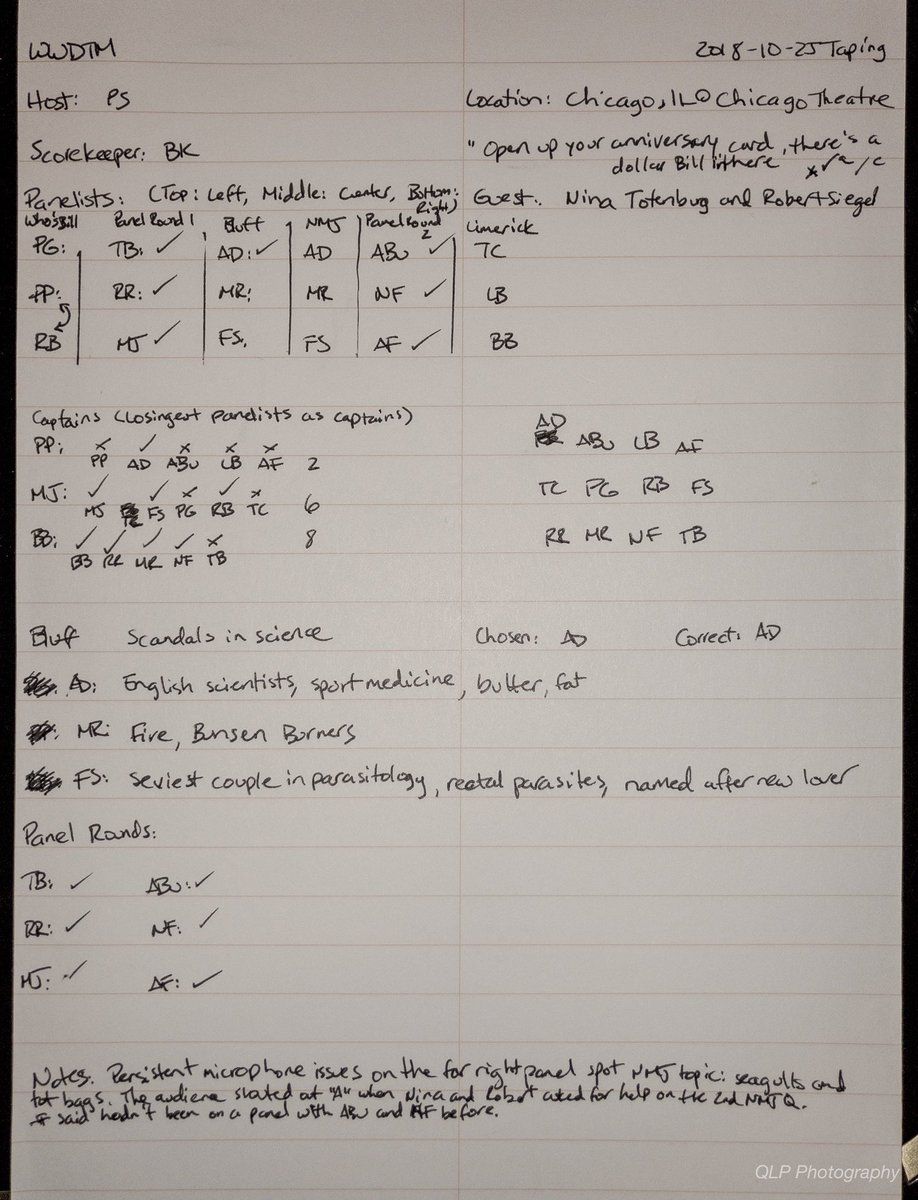 WWDTM 2018-10-25 Taping
Host: PS Location: Chicago, IL @ Chicago Theatre
Scorekeeper: BK "Open up your anniversary card, there's a
dollar Bill in there
Panelists: (Top: Left, Middle: Center, Bottom: Right) Guest: Nina Totenbug and Robert Siegel
Who's Bill Panel Round 1 Bluff NMJ Panel Round 2 Limerick
PG: TB: ✓ AD: ✓ AD ABu ✓ TC
PP: RR: ✓ MR: MR NF ✓ LB
RB MJ ✓ FS: FS AF ✓ BB
Captains (Losingest panelists as captains)
AD
PP: x ✓ x x x ABu LB AF
PP AD ABu LB AF 2
MJ: ✓ ✓ x ✓ x TC PG RB FS
MJ FS PG RB TC 6
BB: ✓ ✓ ✓ ✓ x RR MR NF TB
BB RR MR NF TB 8
Bluff Scandals in science Chosen: AD Correct: AD
AD: English scientists, sport medicine, butter, fat
MR: Fire, Bunsen Burners
FS: Sexiest couple in parasitology, rectal parasites, named after new lover
Panel Rounds:
TB: ✓ ABu: ✓
RR: ✓ NF: ✓
MJ: ✓ AF: ✓
Notes. Persistent microphone issues on the far right panel spot NMJ topic: seagulls and
tot bags. The audience shouted out "A" when Nina and Robert asked for help on the 2nd NMJ Q.
said hadn't been on a panel with ABu and AF before.
QLP Photography